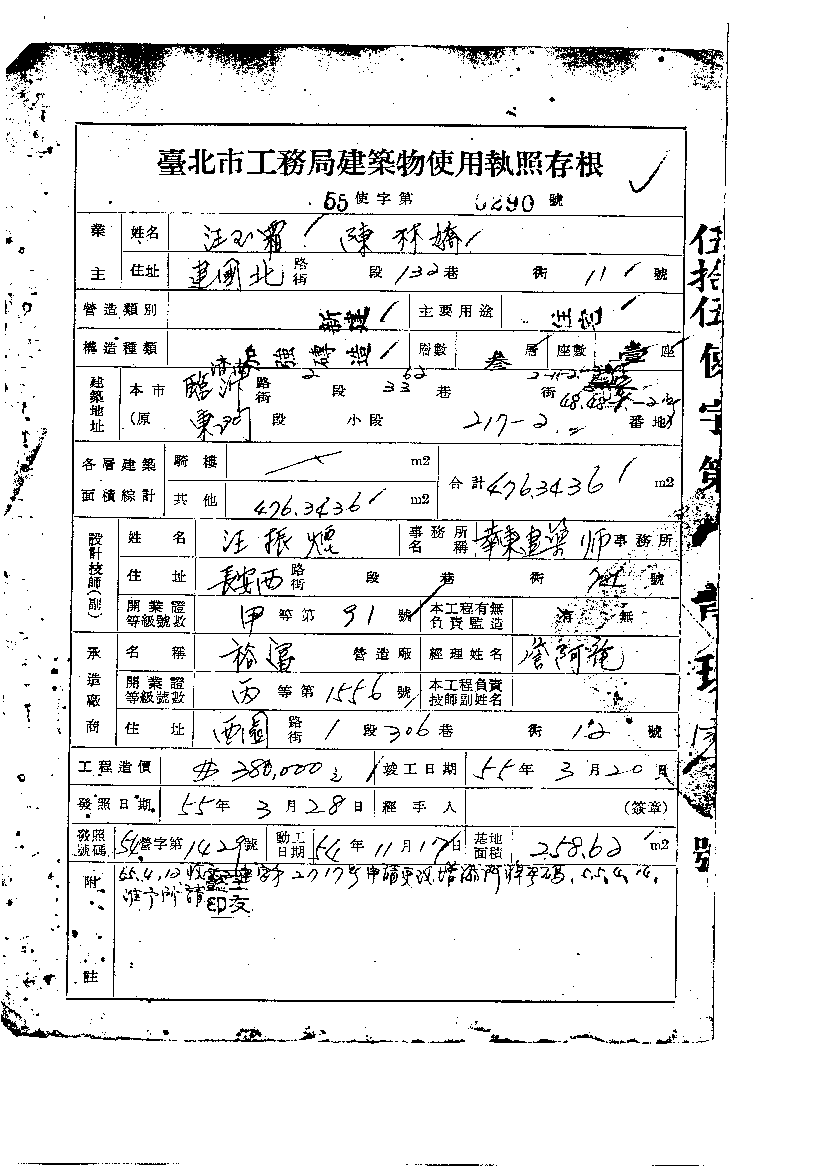 臺北市工務局建築物使用執照存根
55使字第 0290 號
業主 姓名 汪玉霜 陳林嬌
住址 建國北 路街 段 132巷 街 11 號
營造類別 新建 主要用途 住宅
構造種類 加強磚造 層數 叁層 座數 壹座
建築地址 本市 臨沂 路街 段 33 巷 街
(原 東門 段 小段 217-2 番地)
各層建築面積綜計 騎樓 m2 合計 476.3436 m2
其他 476.3436 m2
設計技師(副) 姓名 汪振煙 事務所名稱 華東建築师事務所
住址 長安西 路街 段 巷 街 號
開業證等級號數 甲等第 91 號 本工程有無負責監造 無
承造廠商 名稱 裕富 營造廠 經理姓名
開業證等級號數 丙等第 1556 號 本工程負責技師副姓名
住址 西園 路街 1 段 306 巷 街 12 號
工程造價 380,000 竣工日期 55年 3月20日
發照日期 55年 3月28日 經手人 (簽章)
發照號碼 54營字第1429號 動工日期 54年11月17日 基地面積 258.62 m2
附註 55.4.12 2717号申請更改 55.4.14.
准予所請
伍拾伍使字第 號